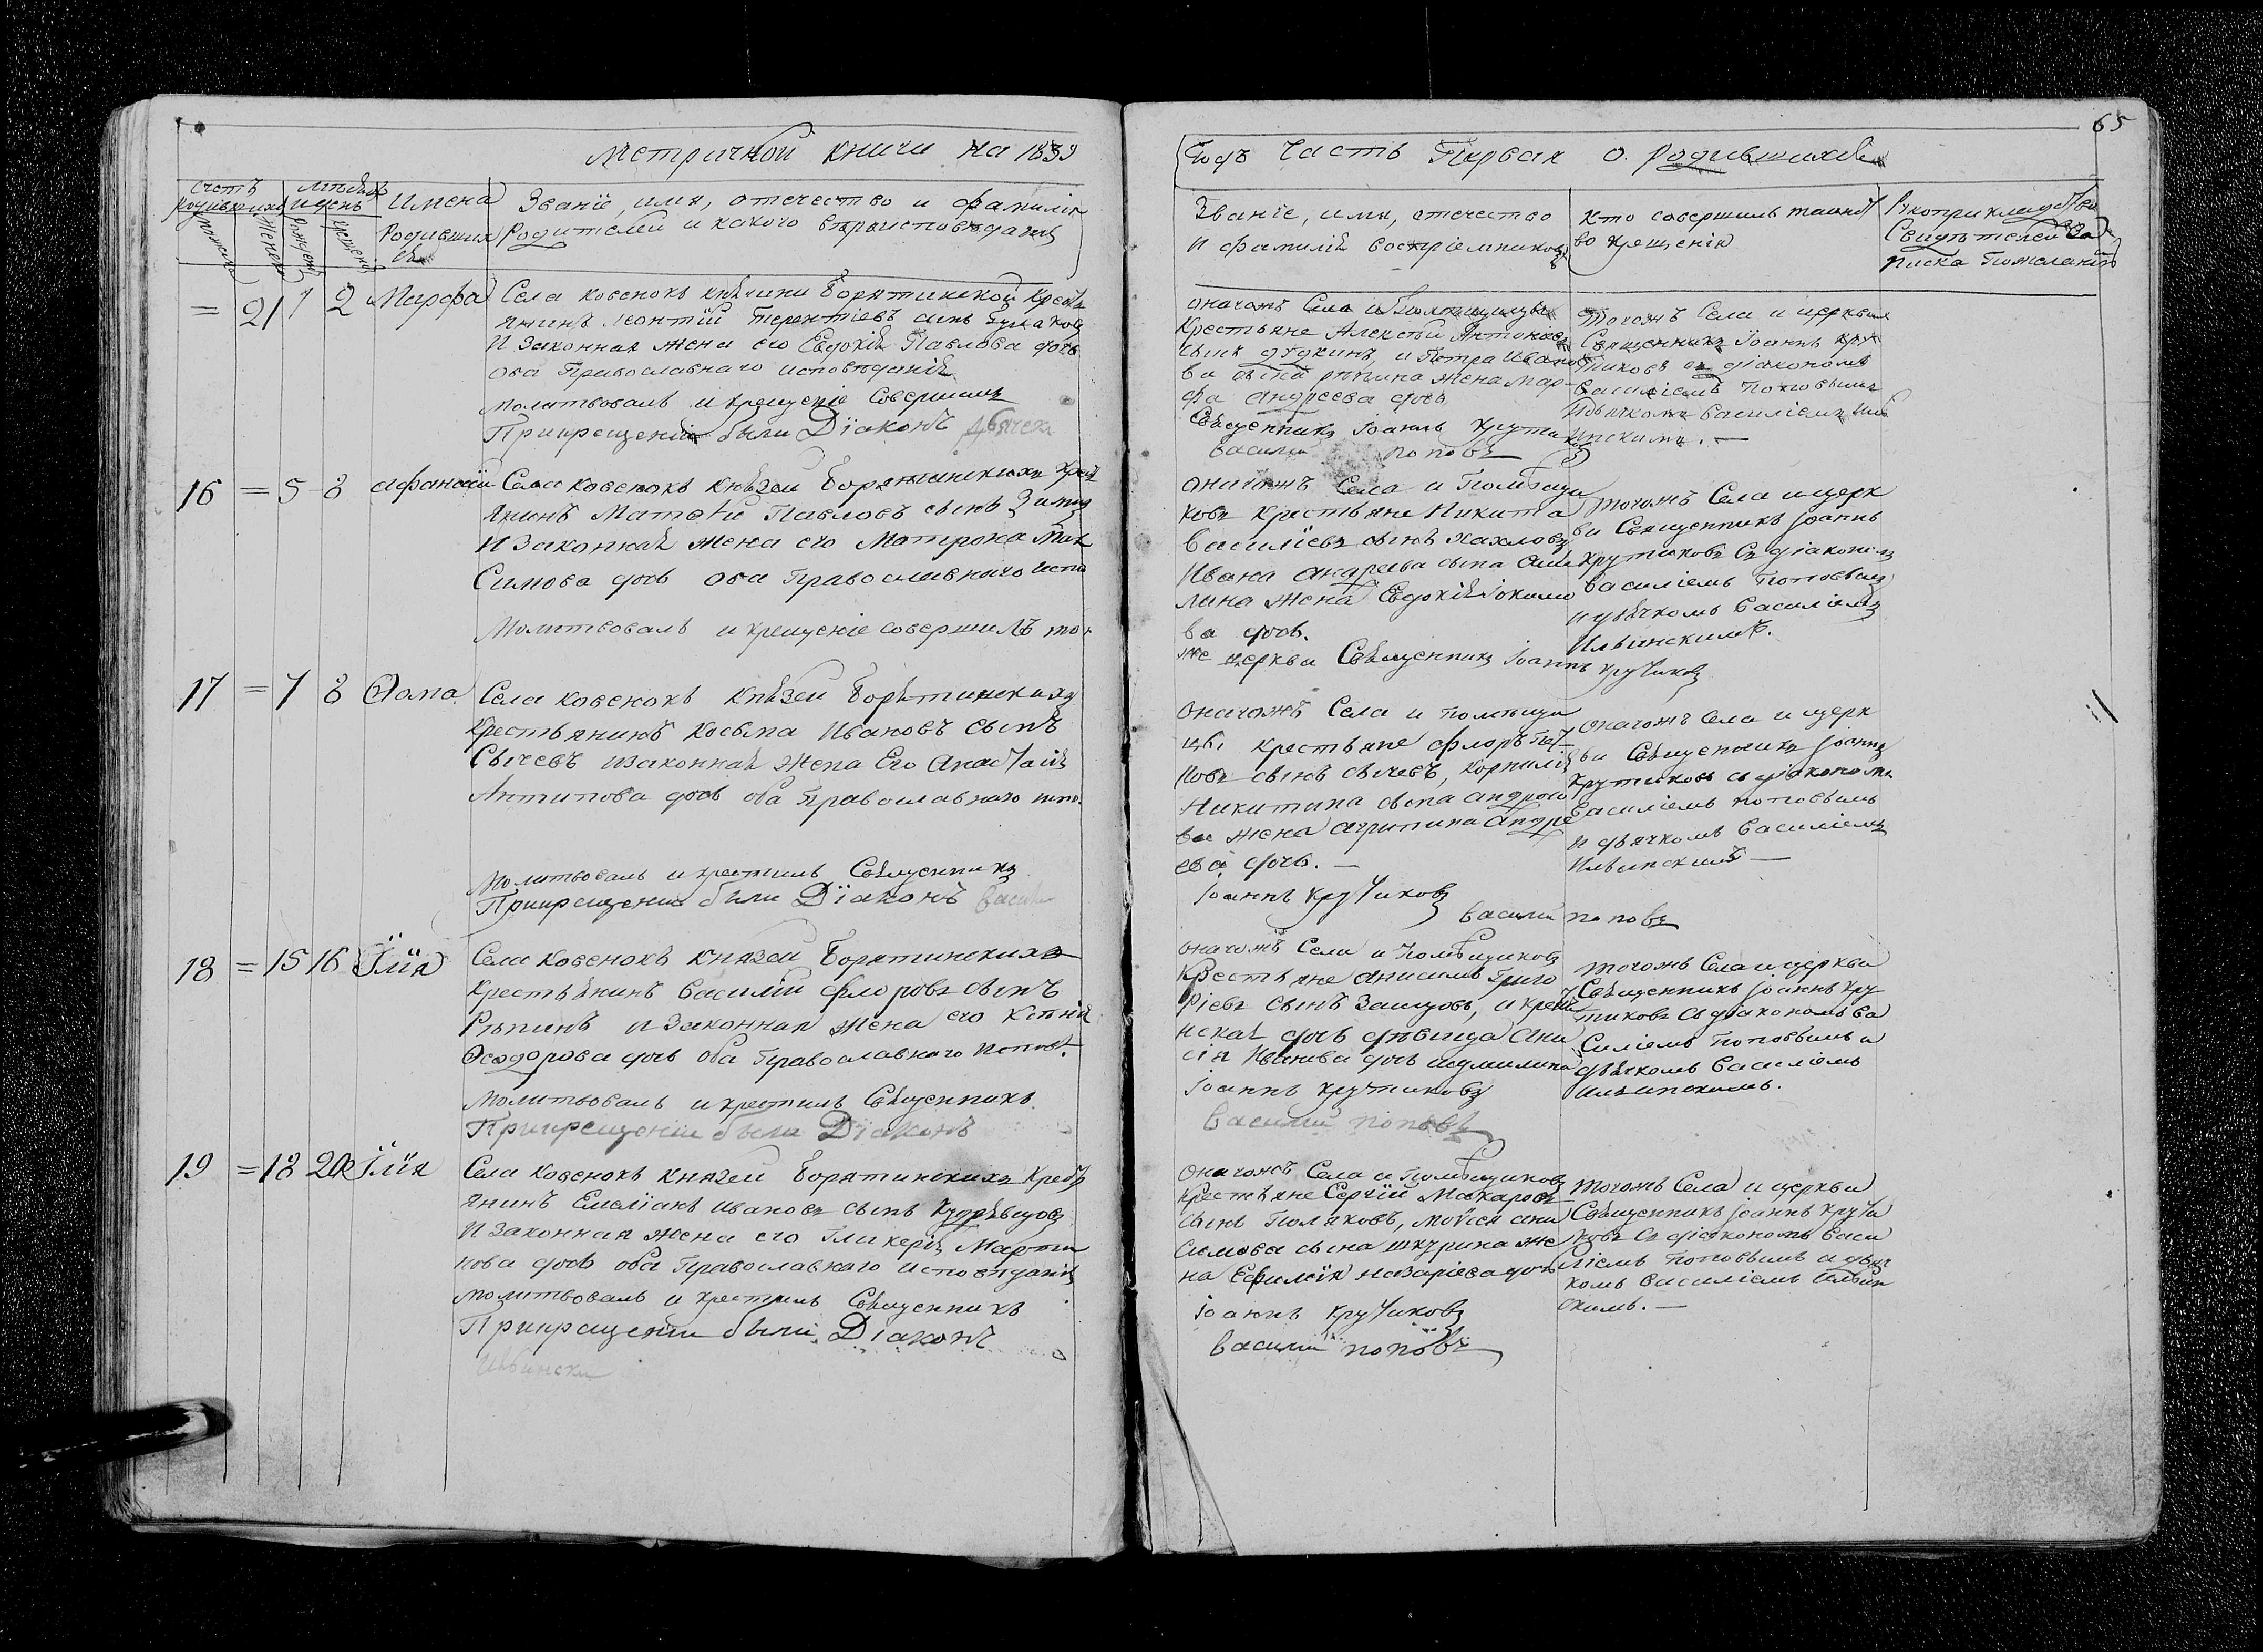 65
Метричной книги на 1839
Годъ Часть Первая о родившихся
Счетъ родившихся
Мѣсяцъ и день
Имена Родившихся
Званіе, имя, отечество и фамилія
Родителей и какого вѣроисповѣданія
Званіе, имя, отечество
и фамилія воспріемниковъ
Кто совершилъ таинст
во крещенія
Рукоприкладство
Свидѣтелей За
писка Пожеланію
= 21 1 2 Марфа
Села ковенокъ княгини Борятинской Кресть
янинъ Леонтій Терентіевъ сынъ
И Законная жена его Евдокія Павлова дочь
оба Православнаго исповѣданія
молитвовалъ и крещеніе Совершилъ
При крещеніи были Діаконъ
Оначожъ Села и Помѣщицы
Крестьяне Алексѣй Антоніевъ
сынъ дудкинъ, и Петра Ивано
ва сына рѣпина жена Мар
фа андреева дочь
Священникъ Іоаннъ Крутиковъ
Василій поповъ
Тогожъ Села и церкви
Священникъ Іоаннъ Кру
тиковъ съ діакономъ
Василіемъ Поповымъ
и дьячкомъ Василіемъ Иль
инскимъ. —
16 = 5 8 Афанасій
Села ковенокъ князей Борятинскихъ крест
янинъ Матѳей Павловъ сынъ
И Законная жена его Матрона Мак
Симова дочь оба Православнаго испо
Молитвовалъ и крещеніе совершилъ то
Оначожъ Села и Помѣщи
ковъ крестьяне Никита
Василіевъ сынъ хахловъ
Ивана андреева сына
лина жена Евдокія
ва дочь.
же церкви Священникъ Іоаннъ Крутиковъ
Тогожъ Села и церк
ви Священникъ Іоаннъ
Крутиковъ съ діакономъ
Василіемъ Поповымъ
и дьячкомъ Василіемъ
Ильинскимъ.
17 = 7 8 Ѳома
Села ковенокъ князей Борятинскихъ
Крестьянинъ Косьма Ивановъ сынъ
Сычевъ и законная жена Его Анастасія
Антипова дочь оба Православнаго испо.
Молитвовалъ и крестилъ Священникъ
При крещеніи были Діаконъ Васили
Оначожъ Села и помѣщи
цы, крестьяне флоръ
новъ сынъ сычевъ, Корнилія
Никитина сына андросо
ва жена агрипина Андре
ева дочь. —
Іоаннъ Крутиковъ
Василій поповъ
Оначожъ Села и церк
ви Священникъ Іоаннъ
Крутиковъ съ діакономъ
Василіемъ поповымъ
и дьячкомъ Василіемъ
Ильинскимъ —
18 = 15 16 Илія
Села ковенокъ князей Борятинскихъ
Крестьянинъ Василій флоровъ сынъ
Рѣпинъ и законная жена его Ксенія
Ѳеодорова дочь оба Православнаго Исповѣ.
Молитвовалъ и крестилъ Священникъ
При крещеніи были Діаконъ
Оначожъ Села и Помѣщиковъ
крестьяне Анисимъ Григо
ріевъ сынъ Зайцовъ, и крестья
нская дочь дѣвица Ани
сія Иванова дочь
Іоаннъ Крутиковъ
Василій поповъ
Тогожъ Села и церкви
Священникъ Іоаннъ Кру
тиковъ съ діакономъ Ва
силіемъ Поповымъ и
дьячкомъ Василіемъ
Ильинскимъ.
19 = 18 20 Илія
Села ковенокъ князей Борятинскихъ Крест
янинъ Емеліанъ Ивановъ сынъ Кудрявцовъ
И законная жена его Гликерія Марти
нова дочь оба Православнаго исповѣданія
Молитвовалъ и крестилъ Священникъ
При крещеніи были Діаконъ
Ильински
Оначожъ Села и Помѣщиковъ
крестьяне Сергій Макаровъ
сынъ Поляковъ, Моисея ани
симова сына шкурина же
на Ефимія Назаріева дочь
Іоаннъ Крутиковъ
Василій поповъ
Тогожъ Села и церкви
Священникъ Іоаннъ Крути
ковъ съ діакономъ Васи
ліемъ Поповымъ и дьяч
комъ Василіемъ Ильин
скимъ. —